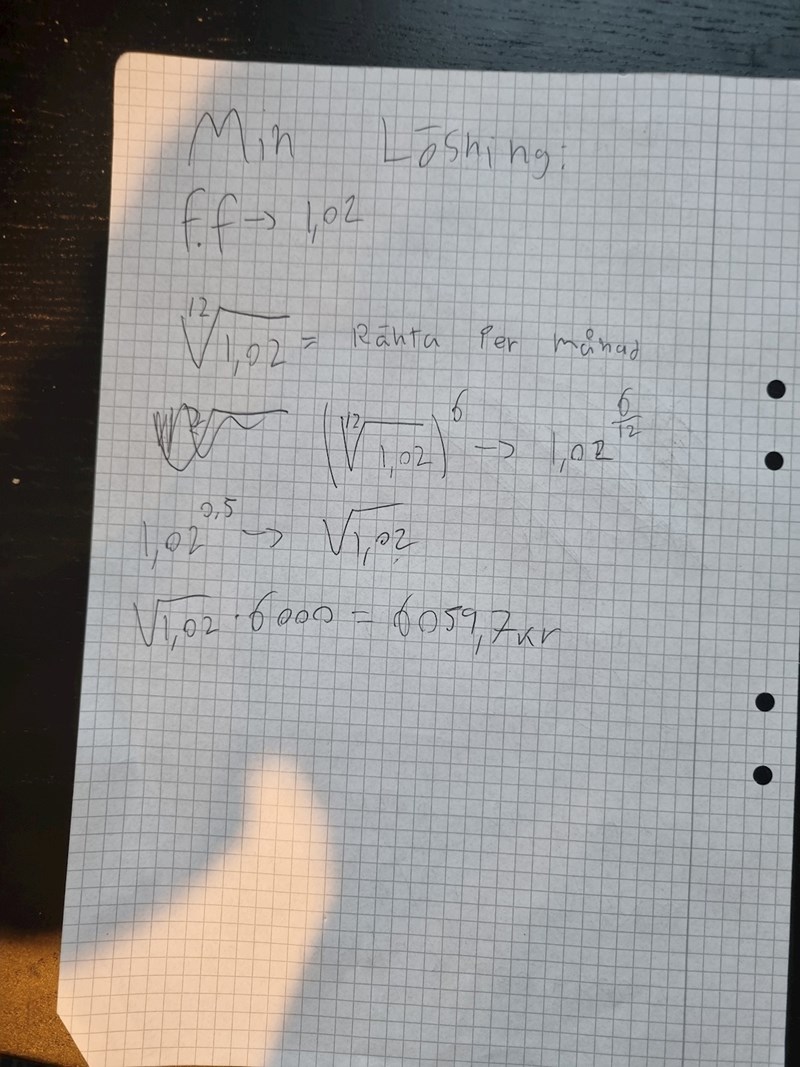 Min Lösning:
f.f → 1,02
¹²√1,02 = Ränta Per månad
(¹²√1,02)⁶ → 1,02^(6/12)
1,02^0,5 → √1,02
√1,02 · 6000 = 6059,7kr